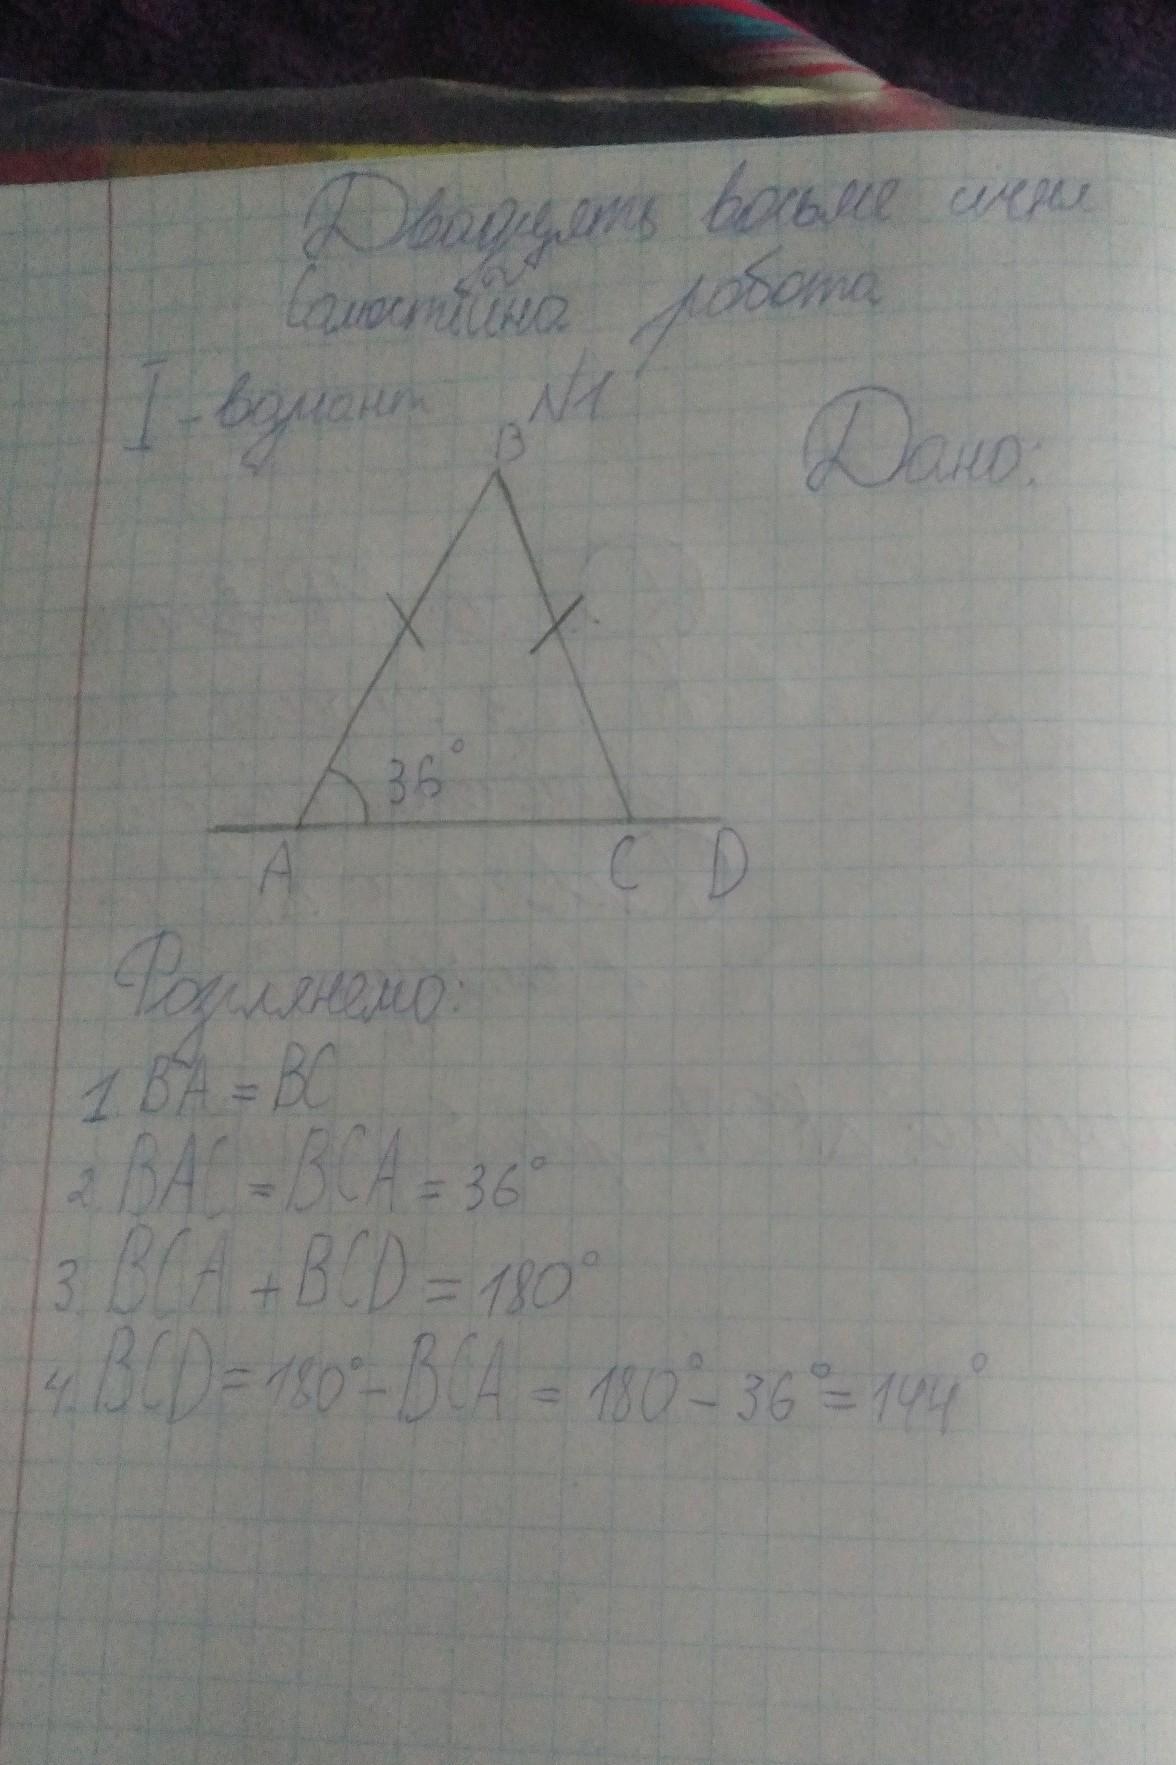 Двадцять восьме січня
Самостійна робота
I-варіант №1
Дано:
B
36°
A C D
Розглянемо:
1. BA = BC
2. BAC = BCA = 36°
3. BCA + BCD = 180°
4. BCD = 180° - BCA = 180° - 36° = 144°